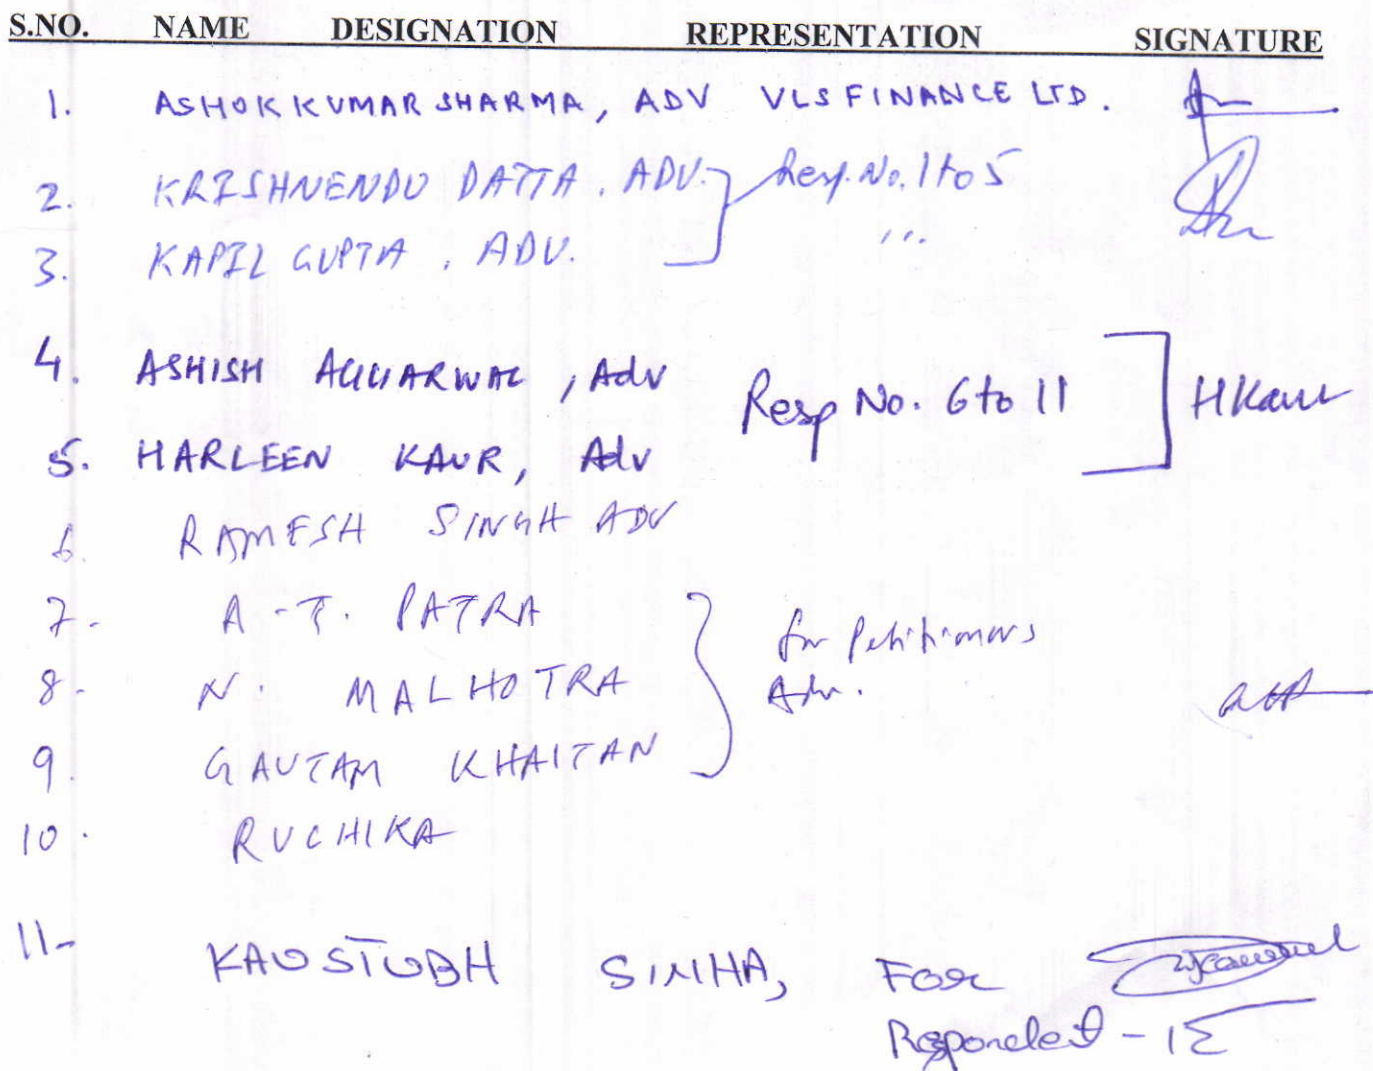 S.NO. NAME DESIGNATION REPRESENTATION SIGNATURE
1. ASHOK KUMAR SHARMA, ADV VLS FINANCE LTD.
2. KRISHNENDU DATTA, ADV. Resp. No. 1 to 5
3. KAPIL GUPTA, ADV. ,,.
4. ASHISH AGGARWAL, Adv Resp No. 6 to 11 HKaur
5. HARLEEN KAUR, Adv
6. RAMESH SINGH ADV
7- A-T. PATRA for Petitioners
8- N. MALHOTRA Adv.
9. GAUTAM KHAITAN
10. RUCHIKA
11- KAUSTUBH SINHA, FOR
Respondent -